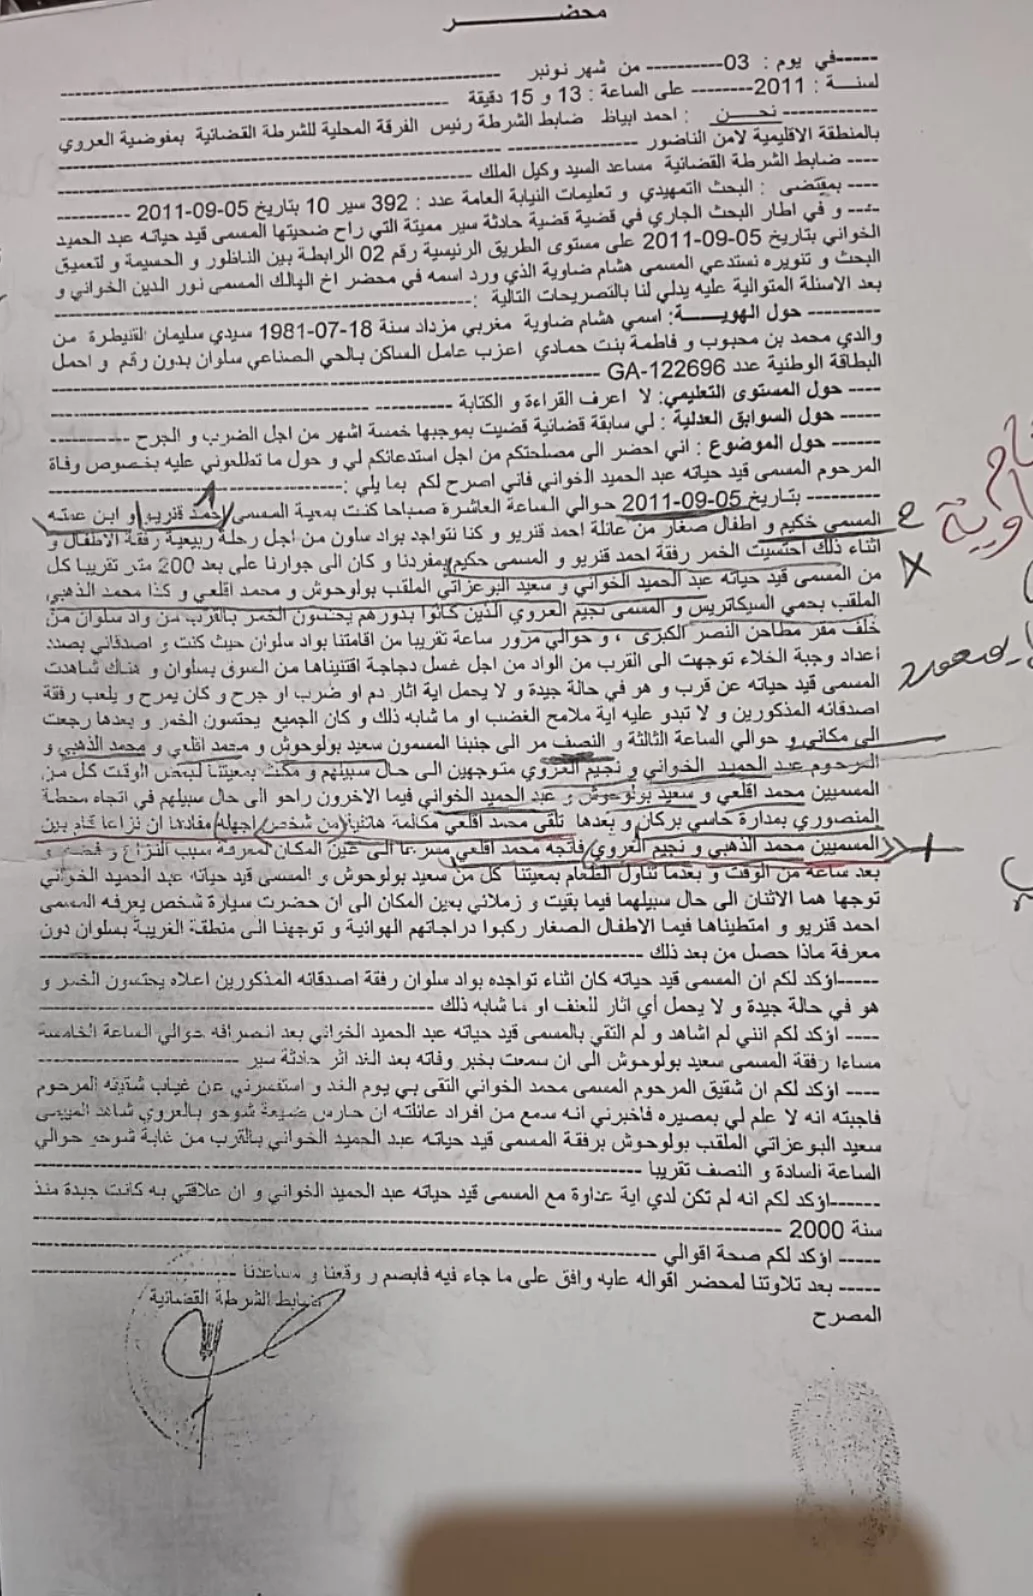 محضــــــــر
-----في يوم : 03---------- من شهر نونبر -----------------------------
لسنـــة : 2011-------- على الساعة : 13 و 15 دقيقة -----------------------------
---------- نحـــــن : احمد ابياظ ضابط الشرطة رئيس الفرقة المحلية للشرطة القضائية بمفوضية العروي
بالمنطقة الاقليمية لامن الناضور -----------------------------
---- ضابط الشرطة القضائية مساعد السيد وكيل الملك -----------------------------
---- بمقتضى : البحث التمهيدي و تعليمات النيابة العامة عدد : 392 سير 10 بتاريخ 05-09-2011 ----------
---- و في اطار البحث الجاري في قضية قضية حادثة سير مميتة التي راح ضحيتها المسمى قيد حياته عبد الحميد
الخواني بتاريخ 05-09-2011 على مستوى الطريق الرئيسية رقم 02 الرابطة بين الناظور و الحسيمة و لتعميق
البحث و تنويره نستدعي المسمى هشام ضاوية الذي ورد اسمه في محضر اخ الهالك المسمى نور الدين الخواني و
بعد الاسئلة المتوالية عليه يدلي لنا بالتصريحات التالية :-----------------------------
---------- حول الهويـــــة: اسمي هشام ضاوية مغربي مزداد سنة 18-07-1981 سيدي سليمان القنيطرة من
والدي محمد بن محبوب و فاطمة بنت حمادي اعزب عامل الساكن بالحي الصناعي سلوان بدون رقم و احمل
البطاقة الوطنية عدد GA-122696 -----------------------------
---- حول المستوى التعليمي: لا اعرف القراءة و الكتابة -----------------------------
----- حول السوابق العدلية : لي سابقة قضائية قضيت بموجبها خمسة اشهر من اجل الضرب و الجرح ----------
------ حول الموضوع : اني احضر الى مصلحتكم من اجل استدعائكم لي و حول ما تطلعوني عليه بخصوص وفاة
المرحوم المسمى قيد حياته عبد الحميد الخواني فاني اصرح لكم بما يلي :-----------------------------
--------- بتاريخ 05-09-2011 حوالي الساعة العاشرة صباحا كنت بمعية المسمى احمد قنريو و ابن عمته
المسمى حكيم و اطفال صغار من عائلة احمد قنريو و كنا نتواجد بواد سلون من اجل رحلة ربيعية رفقة الاطفال و
اثناء ذلك احتسيت الخمر رفقة احمد قنريو و المسمى حكيم بمفردنا و كان الى جوارنا على بعد 200 متر تقريبا كل
من المسمى قيد حياته عبد الحميد الخواني و سعيد البوعزاتي الملقب بولوحوش و محمد اقلعي و كذا محمد الذهبي
الملقب بحمي السيكاتريس و المسمى نجيم العروي الذين كانوا بدورهم يحتسون الخمر بالقرب من واد سلوان من
خلف مقر مطاحن النصر الكبرى ، و حوالي مرور ساعة تقريبا من اقامتنا بواد سلوان حيث كنت و اصدقائي بصدد
أعداد وجبة الخلاء توجهت الى القرب من الواد من اجل غسل دجاجة اقتنيناها من السوق بسلوان و هناك شاهدت
المسمى قيد حياته عن قرب و هو في حالة جيدة و لا يحمل اية اثار دم او ضرب او جرح و كان يمرح و يلعب رفقة
اصدقائه المذكورين و لا تبدو عليه اية ملامح الغضب او ما شابه ذلك و كان الجميع يحتسون الخمر و بعدها رجعت
الى مكاني و حوالي الساعة الثالثة و النصف مر الى جنبنا المسمون سعيد بولوحوش و محمد اقلعي و محمد الذهبي و
المرحوم عبد الحميد الخواني و نجيم العروي متوجهين الى حال سبيلهم و مكث بمعيتنا لبعض الوقت كل من
المسميين محمد اقلعي و سعيد بولوحوش و عبد الحميد الخواني فيما الاخرون راحو الى حال سبيلهم في اتجاه محطة
المنصوري بمدارة حاسي بركان و بعدها تلقى محمد اقلعي مكالمة هاتفية من شخص اجهله مفادها ان نزاعا قام بين
المسميين محمد الذهبي و نجيم العروي فاتجه محمد اقلعي مسرعا الى عين المكان لمعرفة سبب النزاع و فضه و
بعد ساعة من الوقت و بعدما تناول الطعام بمعيتنا كل من سعيد بولوحوش و المسمى قيد حياته عبد الحميد الخواني
توجها هما الاثنان الى حال سبيلهما فيما بقيت و زملائي بعين المكان الى ان حضرت سيارة شخص يعرفه المسمى
احمد قنريو و امتطيناها فيما الاطفال الصغار ركبوا دراجاتهم الهوائية و توجهنا الى منطقة الغريبة بسلوان دون
معرفة ماذا حصل من بعد ذلك -----------------------------
------اؤكد لكم ان المسمى قيد حياته كان اثناء تواجده بواد سلوان رفقة اصدقائه المذكورين اعلاه يحتسون الخمر و
هو في حالة جيدة و لا يحمل أي اثار للعنف او ما شابه ذلك -----------------------------
---- اؤكد لكم انني لم اشاهد و لم التقي بالمسمى قيد حياته عبد الحميد الخواني بعد انصرافه حوالي الساعة الخامسة
مساءا رفقة المسمى سعيد بولوحوش الى ان سمعت بخبر وفاته بعد الغد اثر حادثة سير -----------------------------
---- اؤكد لكم ان شقيق المرحوم المسمى محمد الخواني التقى بي يوم الغد و استفسرني عن غياب شقيقه المرحوم
فاجبته انه لا علم لي بمصيره فاخبرني انه سمع من افراد عائلته ان حارس ضيعة شوحو بالعروي شاهد المسمى
سعيد البوعزاتي الملقب بولوحوش برفقة المسمى قيد حياته عبد الحميد الخواني بالقرب من غابة شوحو حوالي
الساعة السادة و النصف تقريبا -----------------------------
------اؤكد لكم انه لم تكن لدي اية عداوة مع المسمى قيد حياته عبد الحميد الخواني و ان علاقتي به كانت جيدة منذ
سنة 2000 -----------------------------
----- اؤكد لكم صحة اقوالي -----------------------------
----- بعد تلاوتنا لمحضر اقواله عليه وافق على ما جاء فيه فابصم و وقعنا و مساعدنا -----------------------------
ضابط الشرطة القضائية
المصرح